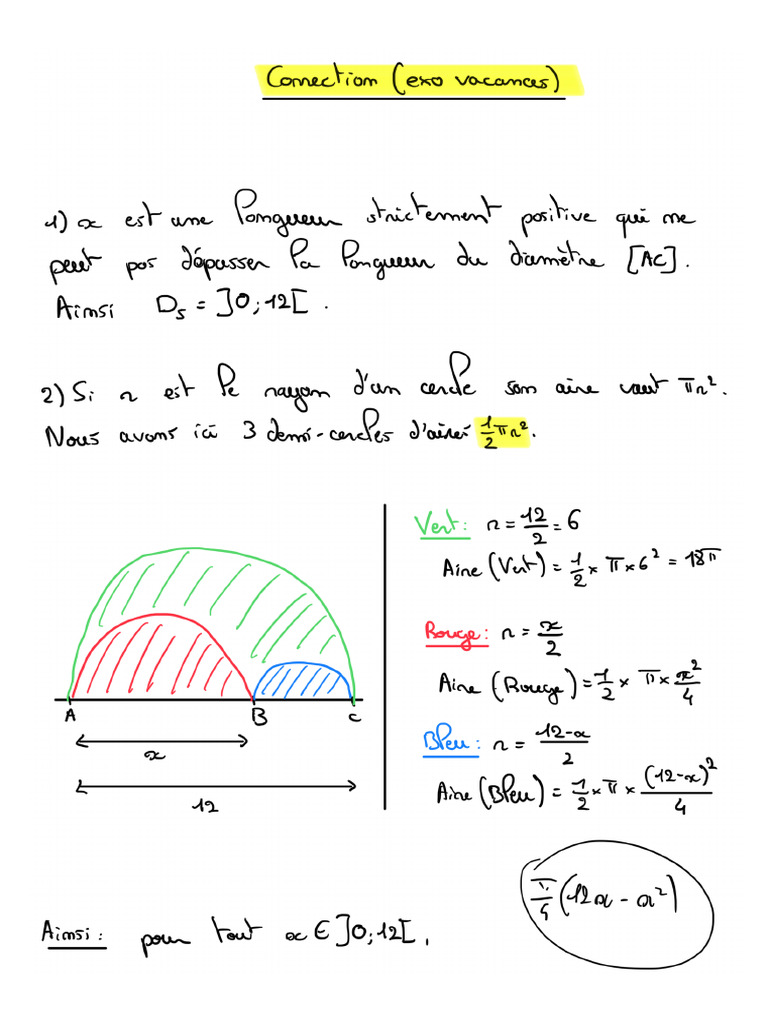 Correction (exo vacances)
1) x est une longueur strictement positive qui ne
peut pas dépasser la longueur du diamètre [AC].
Ainsi Ds = ]0;12[.
2) Si r est le rayon d'un cercle son aire vaut πr².
Nous avons ici 3 demi-cercles d'aires 1/2 πr².
Vert : r = 12/2 = 6
Aire (Vert) = 1/2 × π × 6² = 18π
Rouge : r = x/2
Aire (Rouge) = 1/2 × π × x²/4
Bleu : r = 12-x/2
Aire (Bleu) = 1/2 × π × (12-x)²/4
A B C
x
12
π/4 (12x - x²)
Ainsi : pour tout x ∈ ]0;12[,